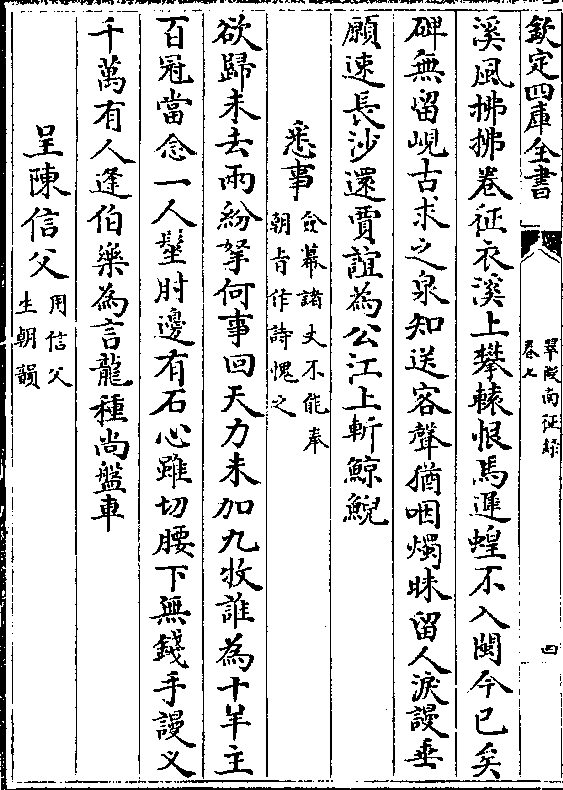 欽定四庫全書
翠微南征録
卷七
四
溪風拂拂卷征衣溪上攀轅恨馬遲蝗不入閩今已矣
碑無留峴古求之泉知送客聲猶咽燭昧留人淚謾垂
願速長沙還賈誼為公江上斬鯨鯢
悉事
僉幕諸丈不能奉
朝旨作詩愧之
欲歸未去兩紛拏何事回天力未加九牧誰為十羊主
百冠當念一人髽肘邊有石心雖切腰下無錢手謾义
千萬有人逢伯樂為言龍種尚盤車
呈陳信父
用信父
生朝韻